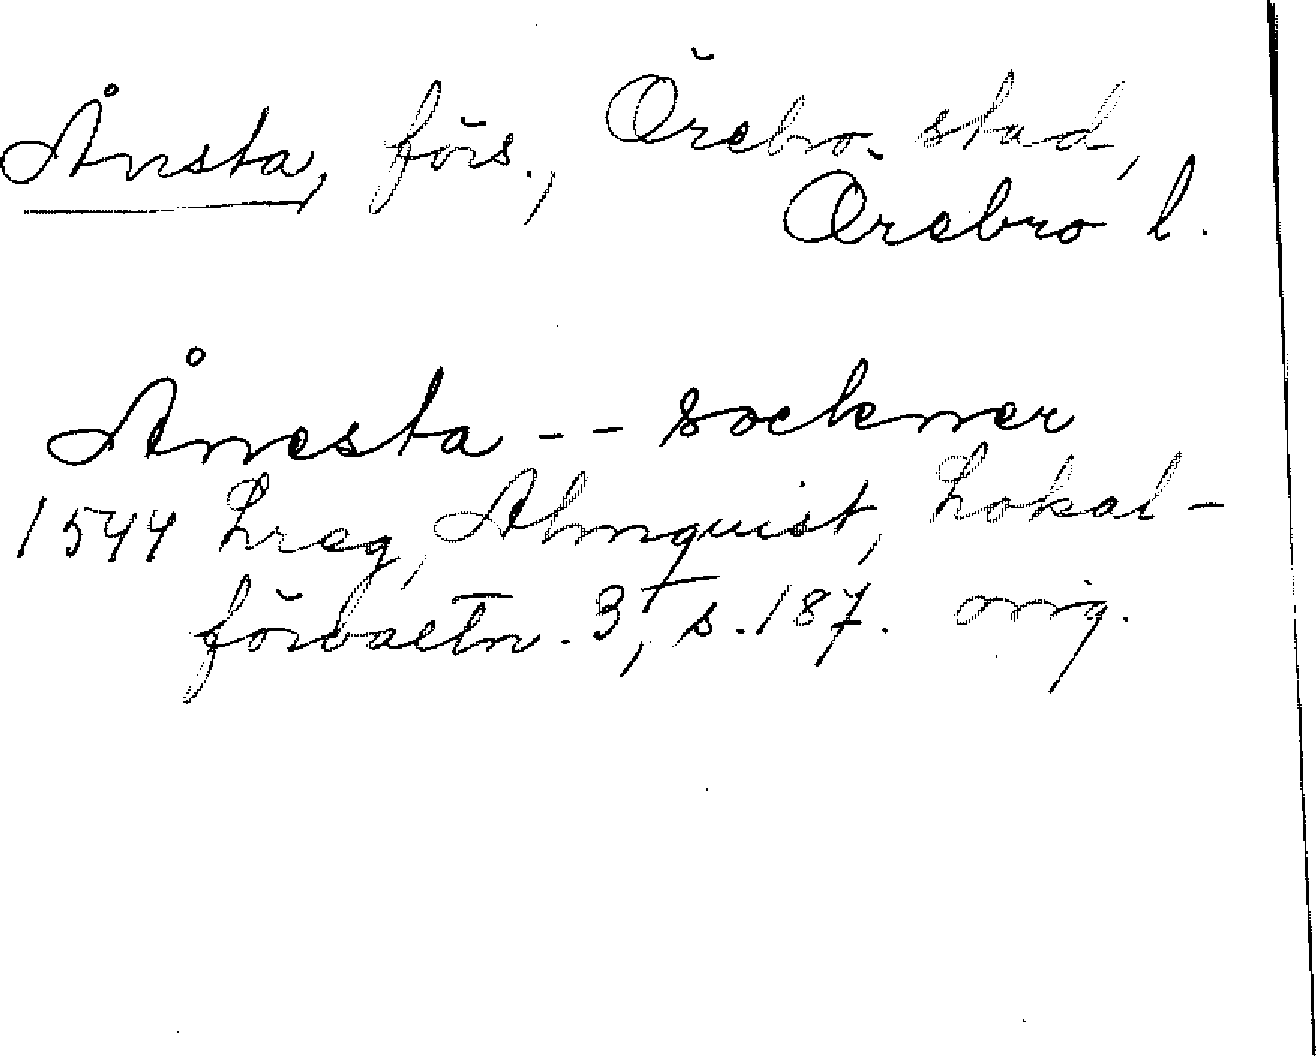 Ånsta, förs., Örebro stad,
Örebro l.
Ånesta -- sockner
1544 Lreg, Almquist, Lokal-
förvaltn. 3, s. 187. orig.